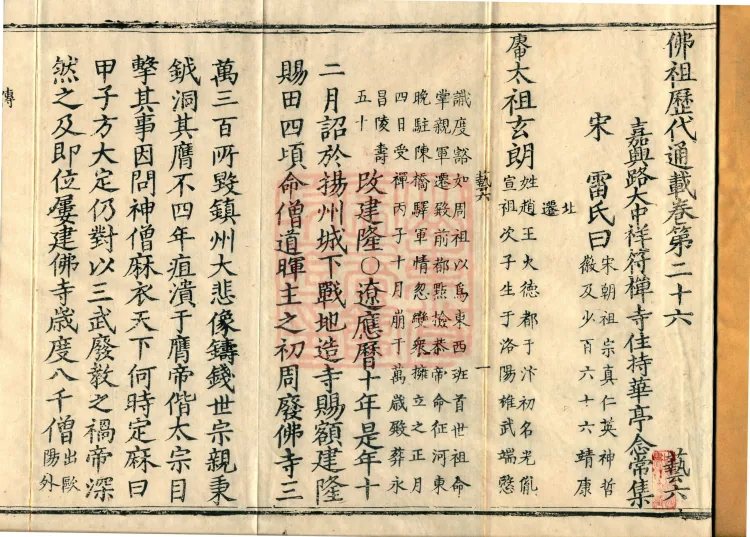 佛祖歷代通載卷第二十六 藝六
嘉興路大中祥符禪寺住持華亭念常集
宋 雷氏曰
宋朝祖宗真仁英神哲
徽及少百六十六靖康
北
遷
庚太祖玄朗
姓趙王火德都于汴初名光胤
宣祖次子生于洛陽雄武端愨
藝六 一
識度豁如周祖以爲東西班首世祖命
掌親軍遷殿前都點撿恭帝命征河東
晚駐陳橋驛軍情忽變衆擁立之正月
四日受禪丙子十月崩于萬歲殿葬永
昌陵壽
五十
改建隆〇遼應曆十年是年十
二月詔於揚州城下戰地造寺賜額建隆
賜田四頃命僧道暉主之初周廢佛寺三
萬三百所毀鎮州大悲像鑄錢世宗親秉
鉞洞其膺不四年疽潰于膺帝偕太宗目
擊其事因問神僧麻衣天下何時定麻曰
甲子方大定仍對以三武廢教之禍帝深
然之及即位屢建佛寺歲度八千僧
出歐
陽外
傳